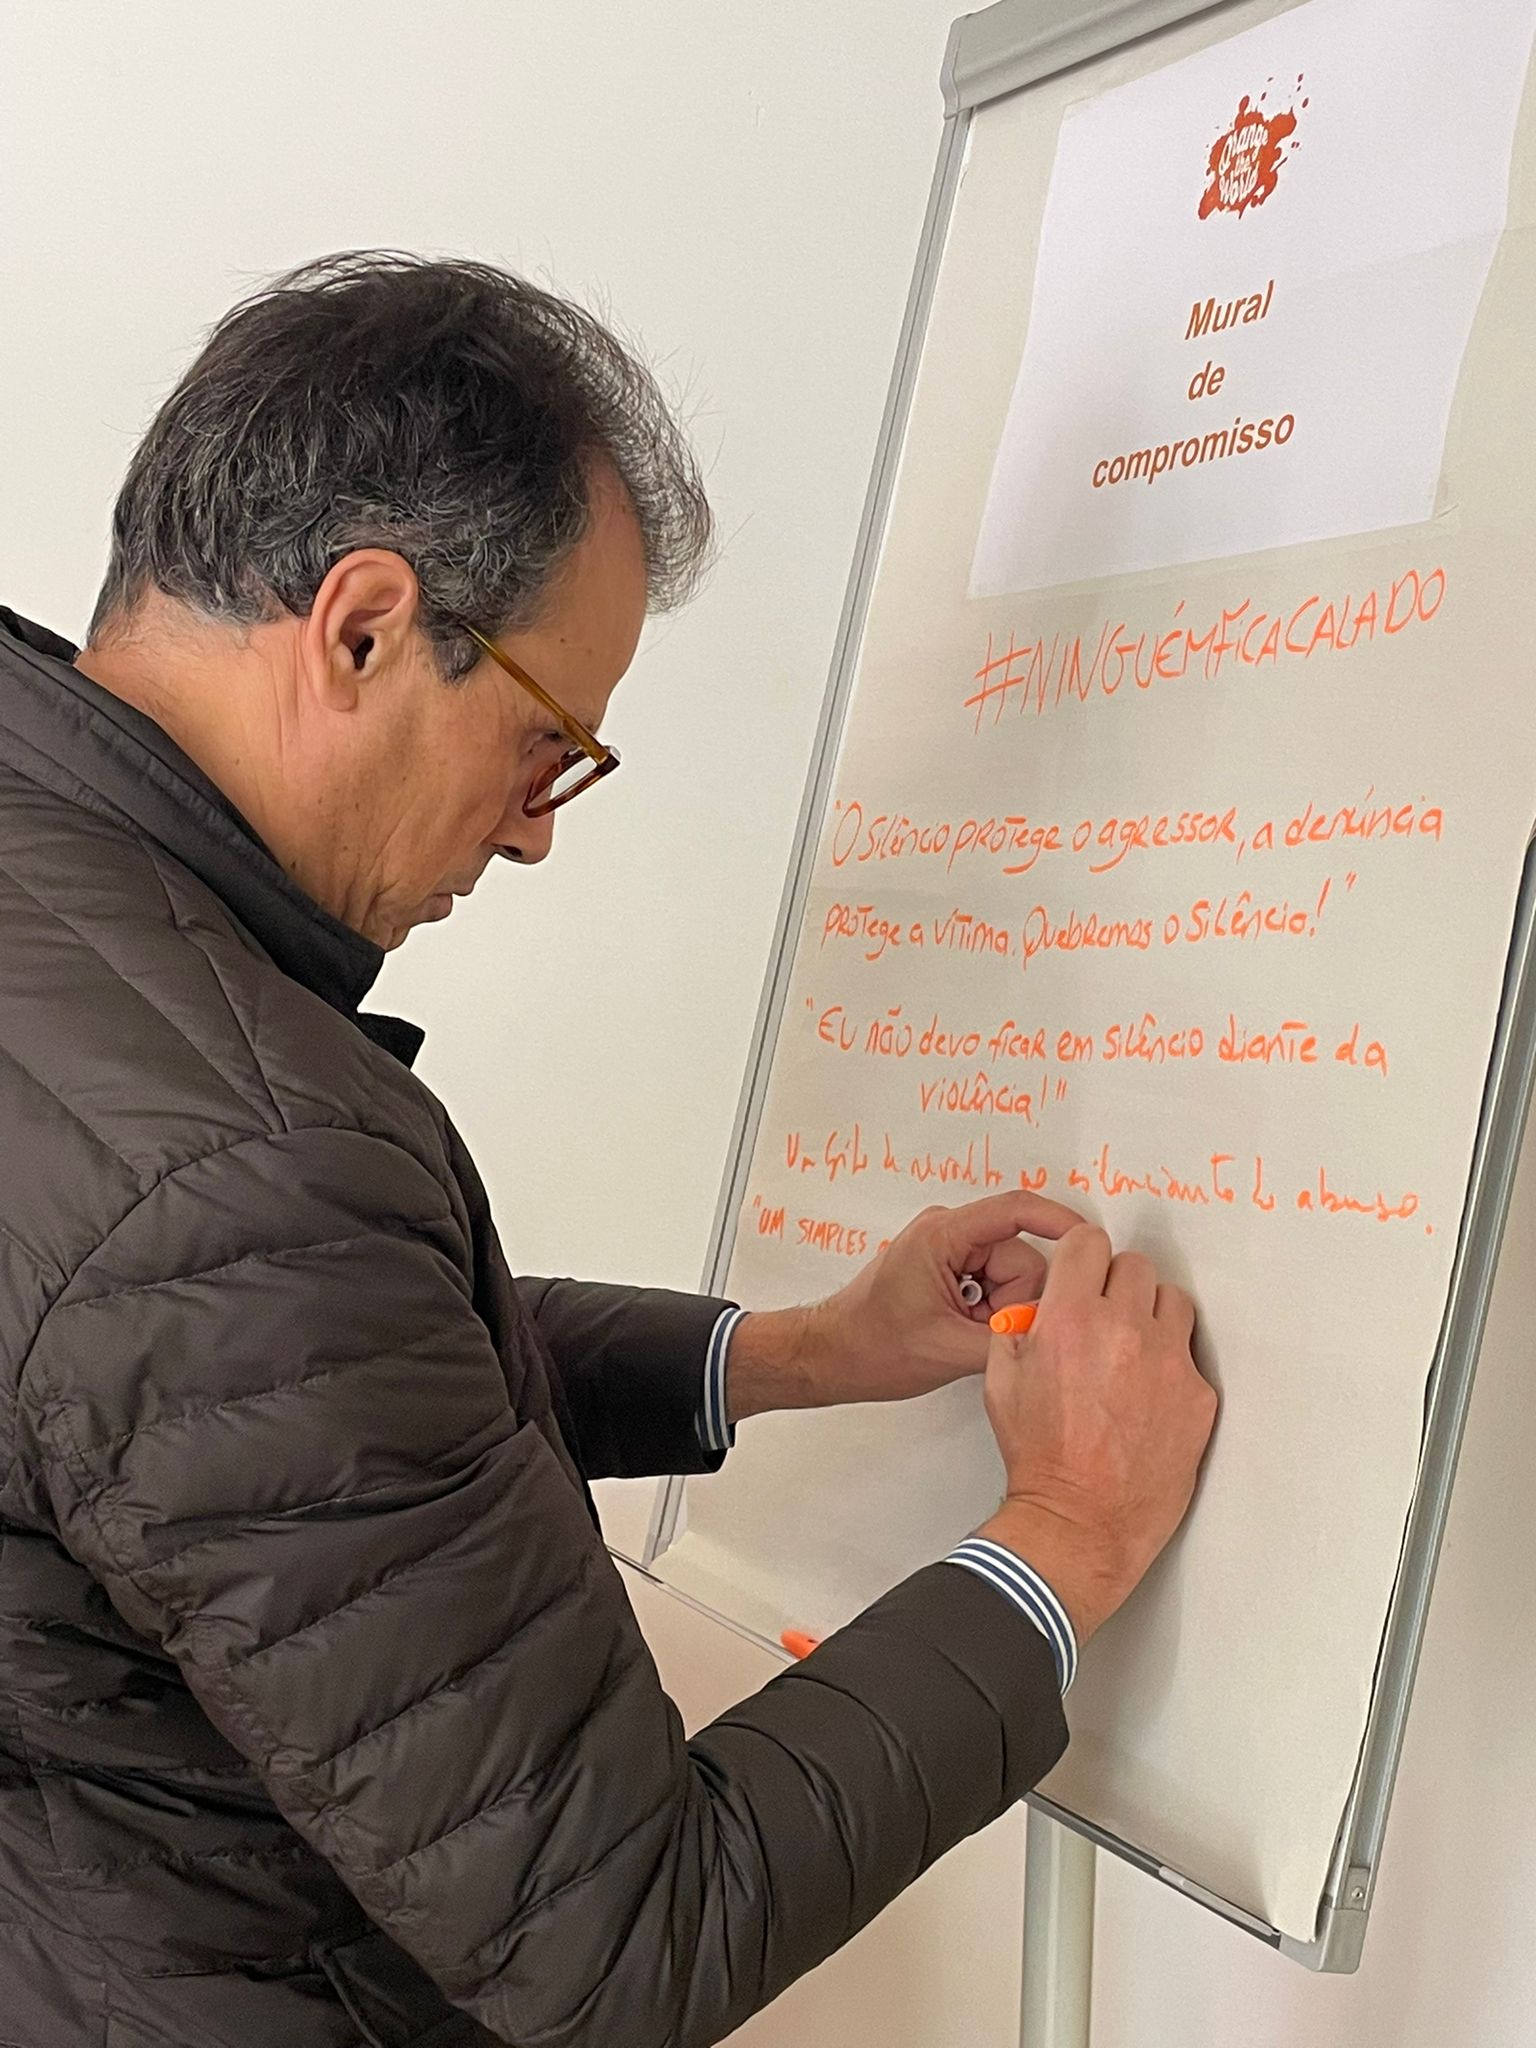 Orange
the
World
Mural
de
compromisso
#NINGUÉMFICACALADO
"O silêncio protege o agressor, a denúncia
protege a vítima. Quebremos o silêncio!"
"Eu não devo ficar em silêncio diante da
violência!"
Um grito de revolta ao silenciamento do abuso.
"UM SIMPLES